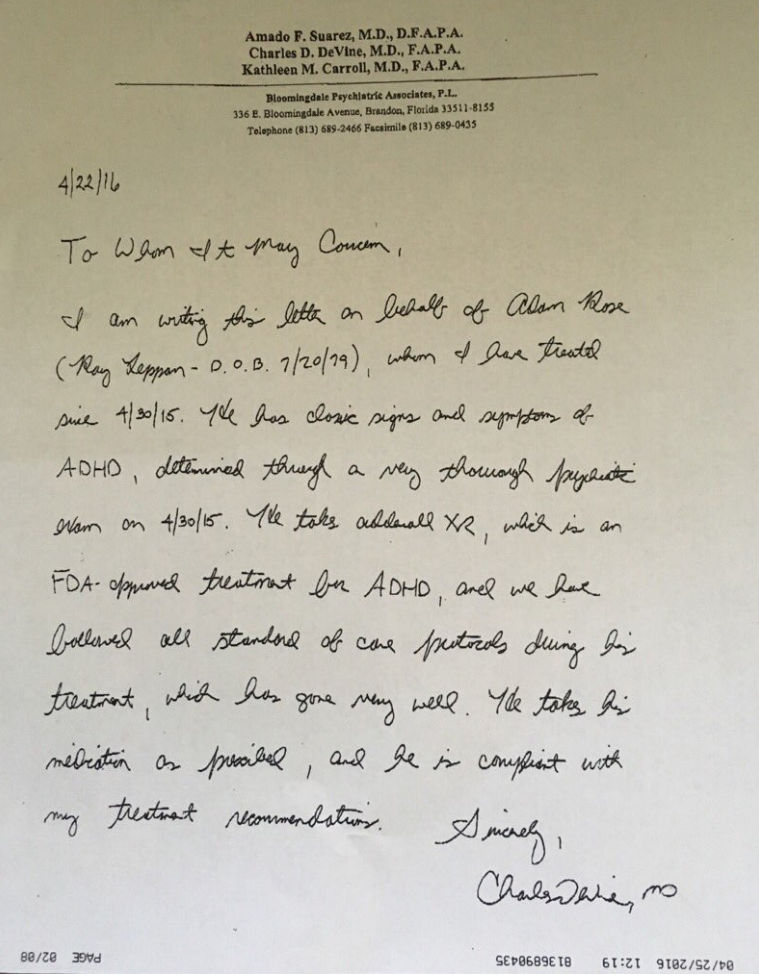 Amado F. Suarez, M.D., D.F.A.P.A.
Charles D. DeVine, M.D., F.A.P.A.
Kathleen M. Carroll, M.D., F.A.P.A.
Bloomingdale Psychiatric Associates, P.L.
336 E. Bloomingdale Avenue, Brandon, Florida 33511-8155
Telephone (813) 689-2466 Facsimile (813) 689-0435
4/22/16
To Whom It May Concern,
I am writing this letter on behalf of Adam Rose
(Ray Leppan - D.O.B. 7/20/79), whom I have treated
since 4/30/15. He has classic signs and symptoms of
ADHD, determined through a very thorough psychiatric
exam on 4/30/15. He takes adderall XR, which is an
FDA-approved treatment for ADHD, and we have
followed all standard of care protocols during his
treatment, which has gone very well. He takes his
medication as prescribed, and he is compliant with
my treatment recommendations. Sincerely,
Charles DeVine, MD
04/25/2016 12:19 8136890435 PAGE 02/08